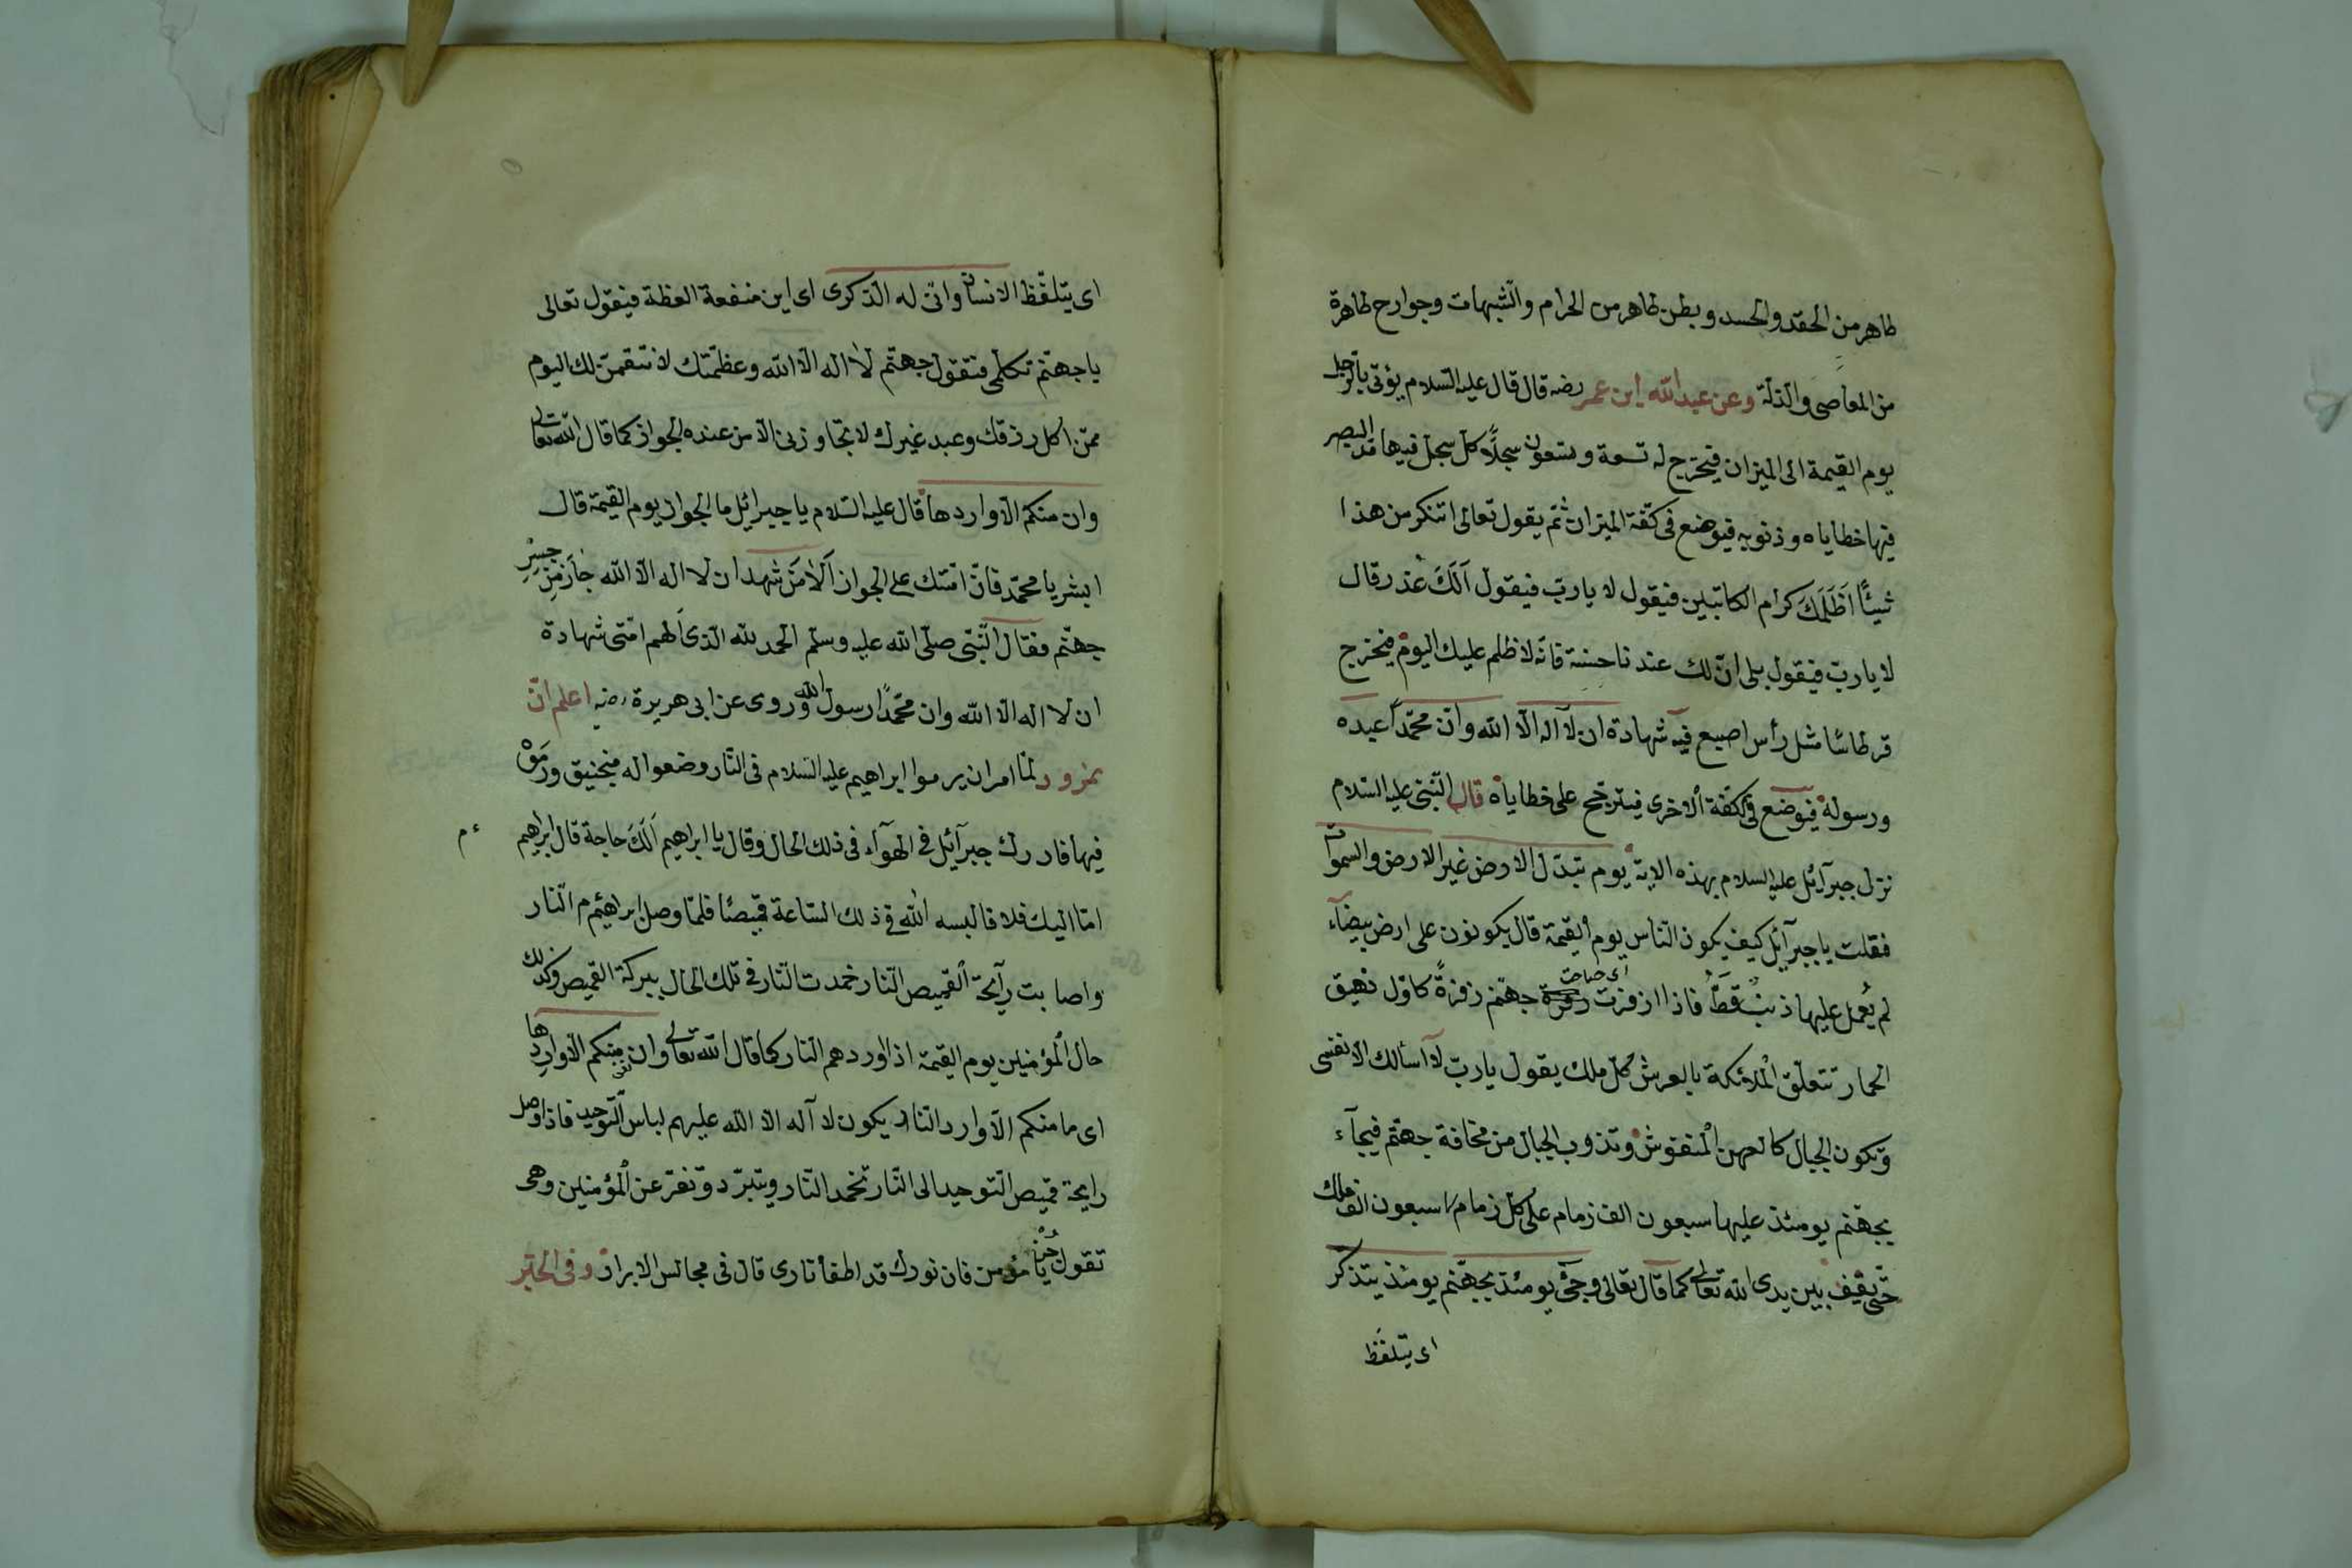 طاهر من الحقد والحسد وبطن طاهر من الحرام والشّبهات وجوارح طاهرة
من المعاصى والذلة وعن عبد اللّه ابن عمر رضه قال قال عليه السّلام يؤتى بالرّجل
يوم القيمة الى الميزان فيخرج له تسعة وتسعون سجلّاً كل سجل فيها مدّ البصر
فيها خطاياه وذنوبه فيوضع فى كفّة الميزان ثمّ يقول تعالى اتنكر من هذا
شيئاً اظلمك كرام الكاتبين فيقول لا يا ربّ فيقول ألَكَ عُذر قال
لا يا ربّ فيقول بلى انّ لك عندنا حسنة فانّه لا ظلم عليك اليوم فيخرج
قرطاسًا مثل رأس اصبع فيه شهادة ان لا اله الّا اللّه وانّ محمّداً عبده
ورسوله فيوضع فى كفّة الاخرى فيترجّح على خطاياه قال النّبى عليه السّلام
نزل جبرآئل عليه السلام بهذه الاية يوم تبدّل الارض غير الارض والسموات
فقلت يا جبرآئل كيف يكون الناس يوم القيمة قال يكونون على ارض بيضآء
لم يُعمل عليها ذنبٌ قطُّ فاذا ازفرت زفرة جهنّم زفرةً كاوّل نهيق
اى صاحت
الحمار تتعلّق الملائكة بالعرش كلّ ملك يقول يا ربّ لا اسألك الّا نفسى
وتكون الجبال كالعهن المنفوش وتذوب الجبال من مخافة جهنّم فيجآء
بجهنّم يومئذ عليها سبعون الف زمام على كلّ زمام سبعون الف ملك
حتّى يقف بين يدى اللّه تعالى كما قال تعالى وجئ يومئذ بجهنّم يومئذ يتذكر
اى يتلفّظ
اى يتلفّظ الانسان وانّى له الذّكرى اى اين منفعة العظة فيقول تعالى
يا جهنّم تكلّمى فتقول جهنّم لا اله الّا اللّه وعظمّتك لانتقمنّ لك اليوم
ممّن اكل رزقك وعبد غيرك لا يتجاوزنى الّا من عنده الجواز كما قال اللّه تعالى
وان منكم الّا واردها قال عليه السّلام يا جبرائيل ما الجواز يوم القيمة قال
ابشر يا محمّد فانّ امّتك على الجواز ألا مَنْ شهد ان لا اله الّا اللّه جازَ مِنْ جِسْرِ
جهنّم فقال النّبى صلّى اللّه عليه وسلّم الحمد للّه الّذى ألهم امّتى شهادة
ان لا اله الّا اللّه وان محمّداً رسول اللّه وروى عن ابى هريرة رضه اعلم انّ
نمرود لمّا امر ان يرموا ابراهيم عليه السّلام فى النّار وضعوا له منجنيق ورَمَوْ
فيها فادرك جبرآئيل فى الهوآء فى ذلك الحال وقال يا ابراهيم ألَكَ حاجة قال ابراهيم
ء م
امّا اليك فلا فالبسه اللّه فى ذلك السّاعة قميصًا فلمّا وصل ابراهيم م النّار
واصابت رآيحة القميص النّار خمدت النّار فى تلك الحال ببركة القميص وكذلك
حال المؤمنين يوم القيمة اذا اوردهم النار كما قال اللّه تعالى وان منكم الّا واردها
اى ما منكم الّا وارد النار يكون لا آله الا اللّه عليهم لباس التّوحيد فاذا وصل
رايحة قميص التّوحيد الى النّار تخمد النّار وتبرّد وتفرّ عن المؤمنين وهى
تقول جُزْ يا مؤمن فان نورك قد اطفأ نارى قال فى مجالس الابرار وفى الخبر